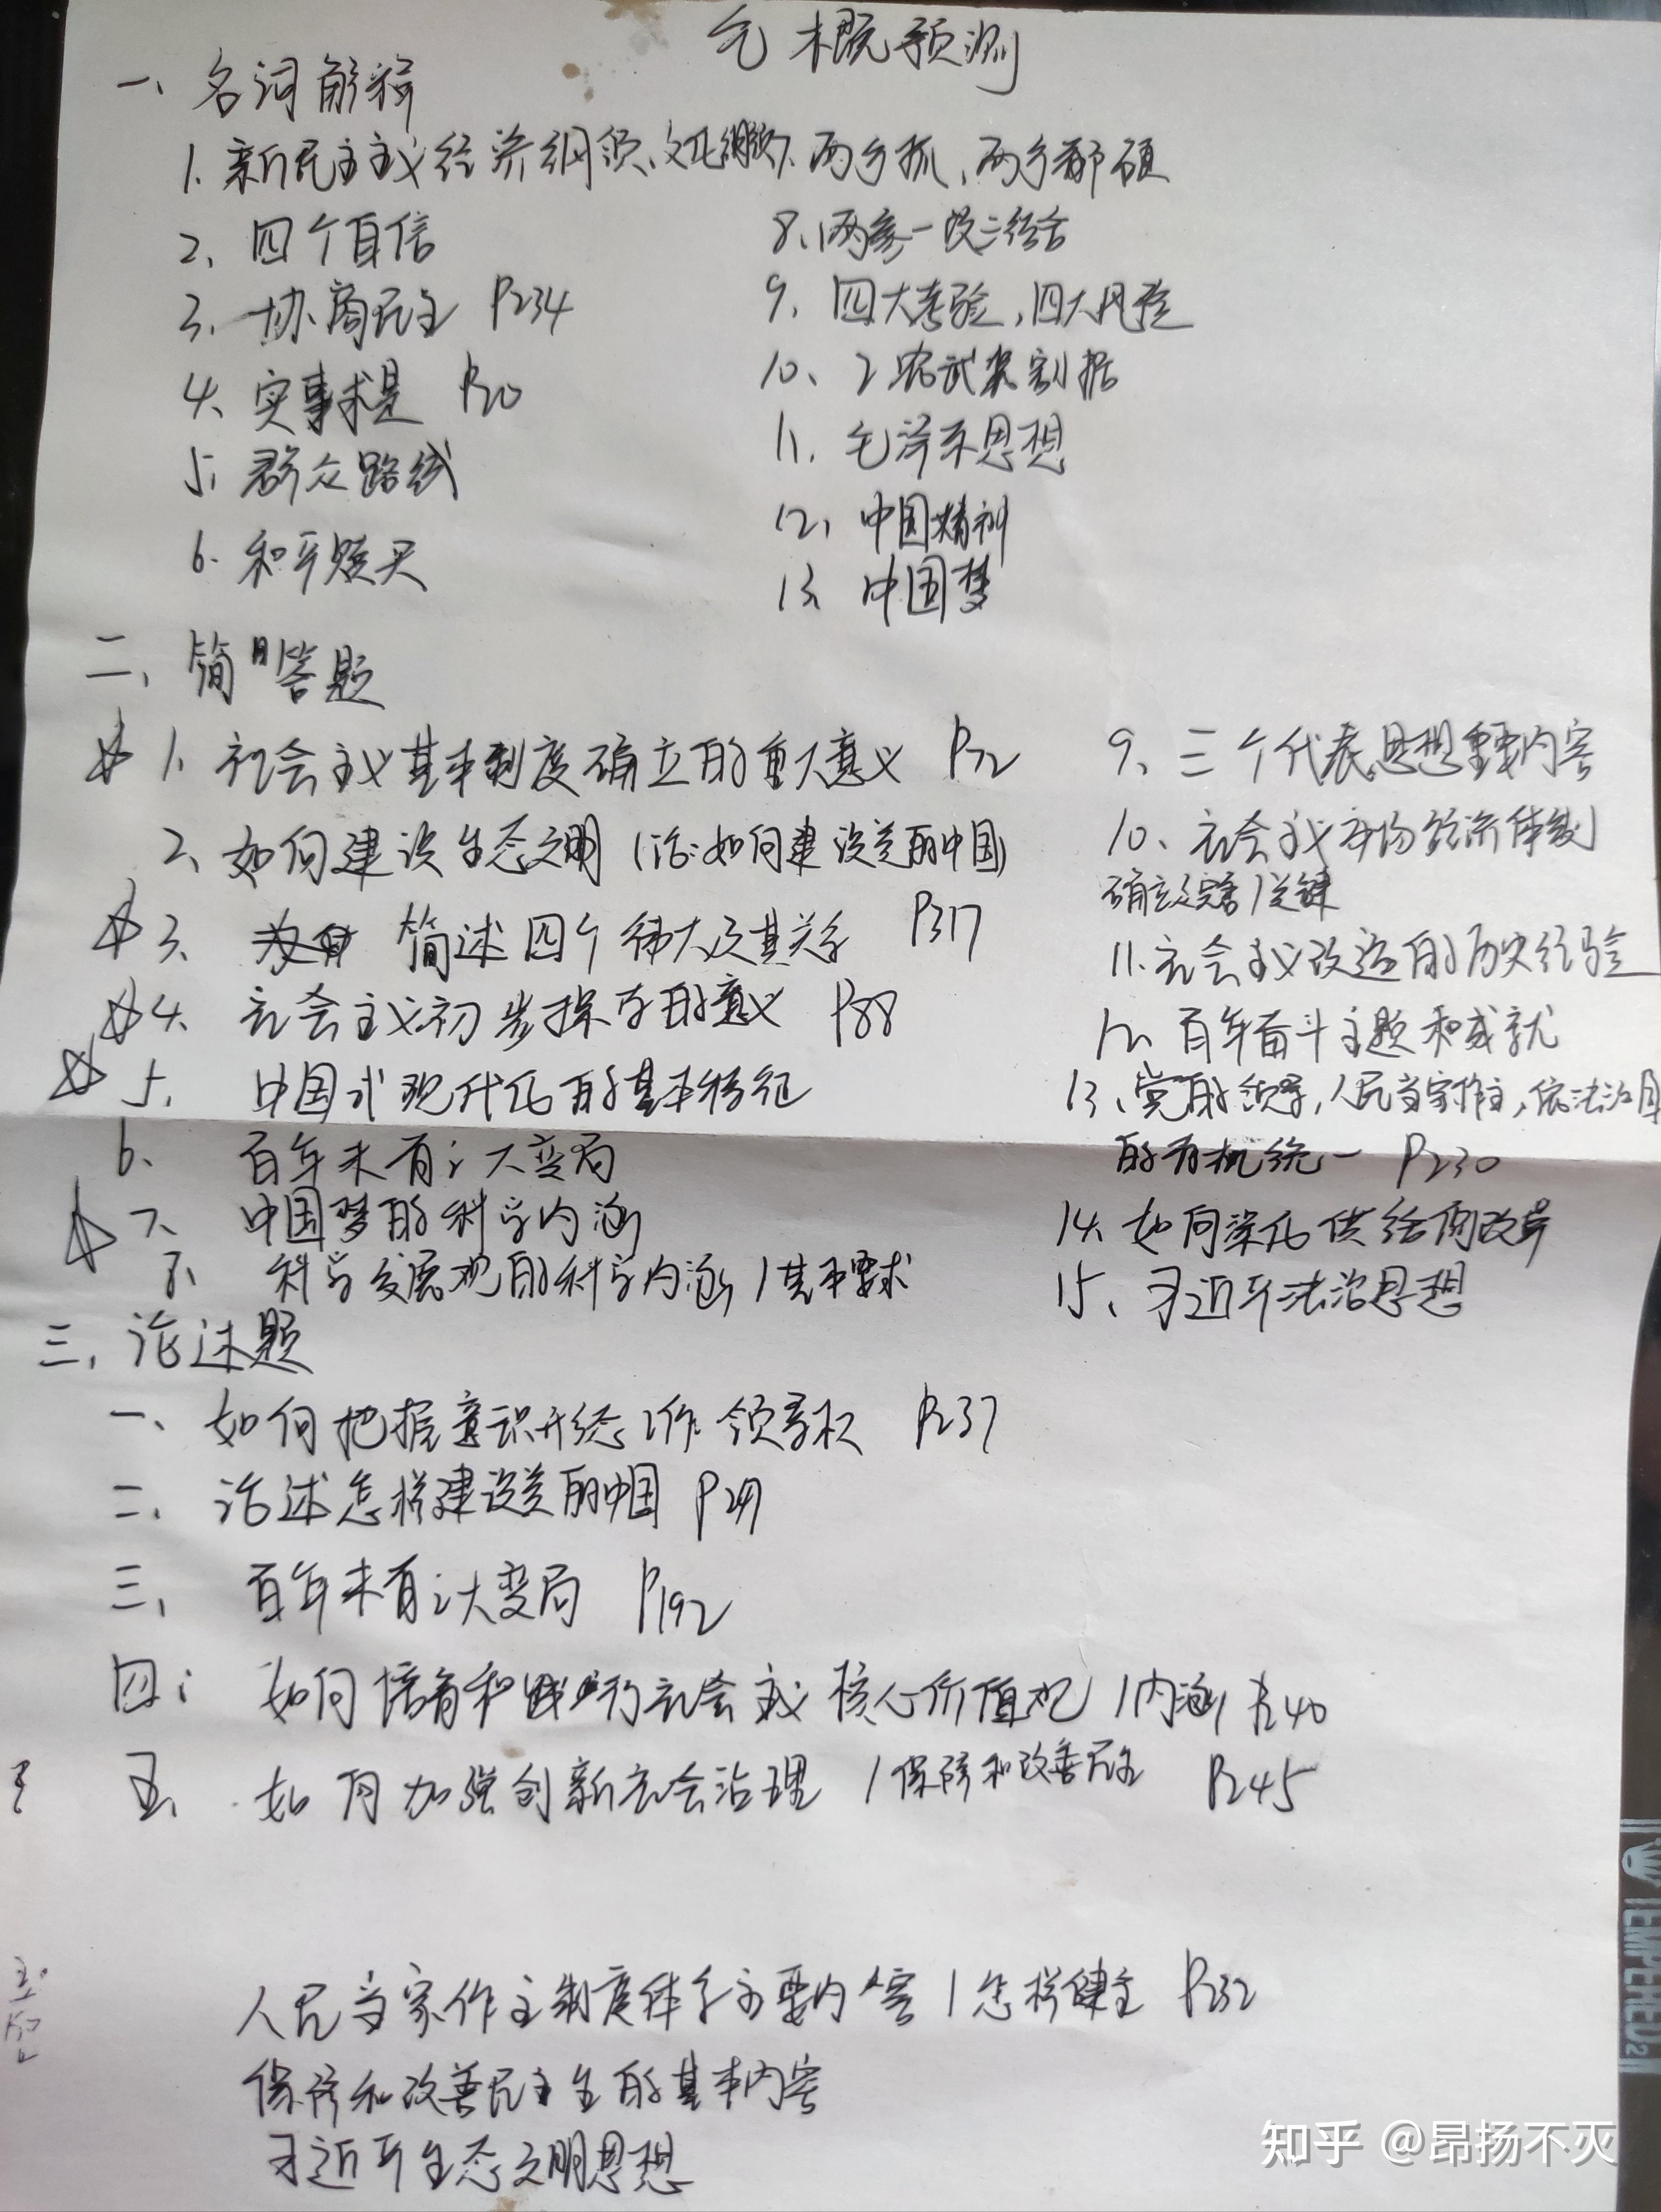 毛概预测
一、名词解释
1、新民主主义经济纲领、文化纲领、两手抓,两手都硬
2、四个自信
3、协商民主 P234
4、实事求是 P20
5、群众路线
6、和平赎买
8、两参一改三结合
9、四大考验,四大风险
10、工农武装割据
11、毛泽东思想
12、中国精神
13、中国梦
二、简答题
☆ 1、社会主义基本制度确立的重大意义 P72
2、如何建设生态文明(论:如何建设美丽中国)
☆ 3、简述四个伟大及其关系 P317
☆ 4、社会主义初步探索的意义 P88
☆ 5、中国式现代化的基本特征
6、百年未有之大变局
☆ 7、中国梦的科学内涵
8、科学发展观的科学内涵/基本要求
9、三个代表思想主要内容
10、社会主义市场经济体制
确立及完善/关键
11、社会主义改造的历史经验
12、百年奋斗主题和成就
13、党的领导,人民当家作主,依法治国
的有机统一 P230
14、如何深化供给侧改革
15、习近平法治思想
三、论述题
一、如何把握意识形态工作领导权 P237
二、论述怎样建设美丽中国 P249
三、百年未有之大变局 P192
四、如何培育和践行社会主义核心价值观/内涵 P240
五、如何加强创新社会治理/保障和改善民生 P245
人民当家作主制度体系主要内容/怎样健全 P232
保障和改善民生的基本内容
习近平生态文明思想
TEMPERED
知乎 @昂扬不灭